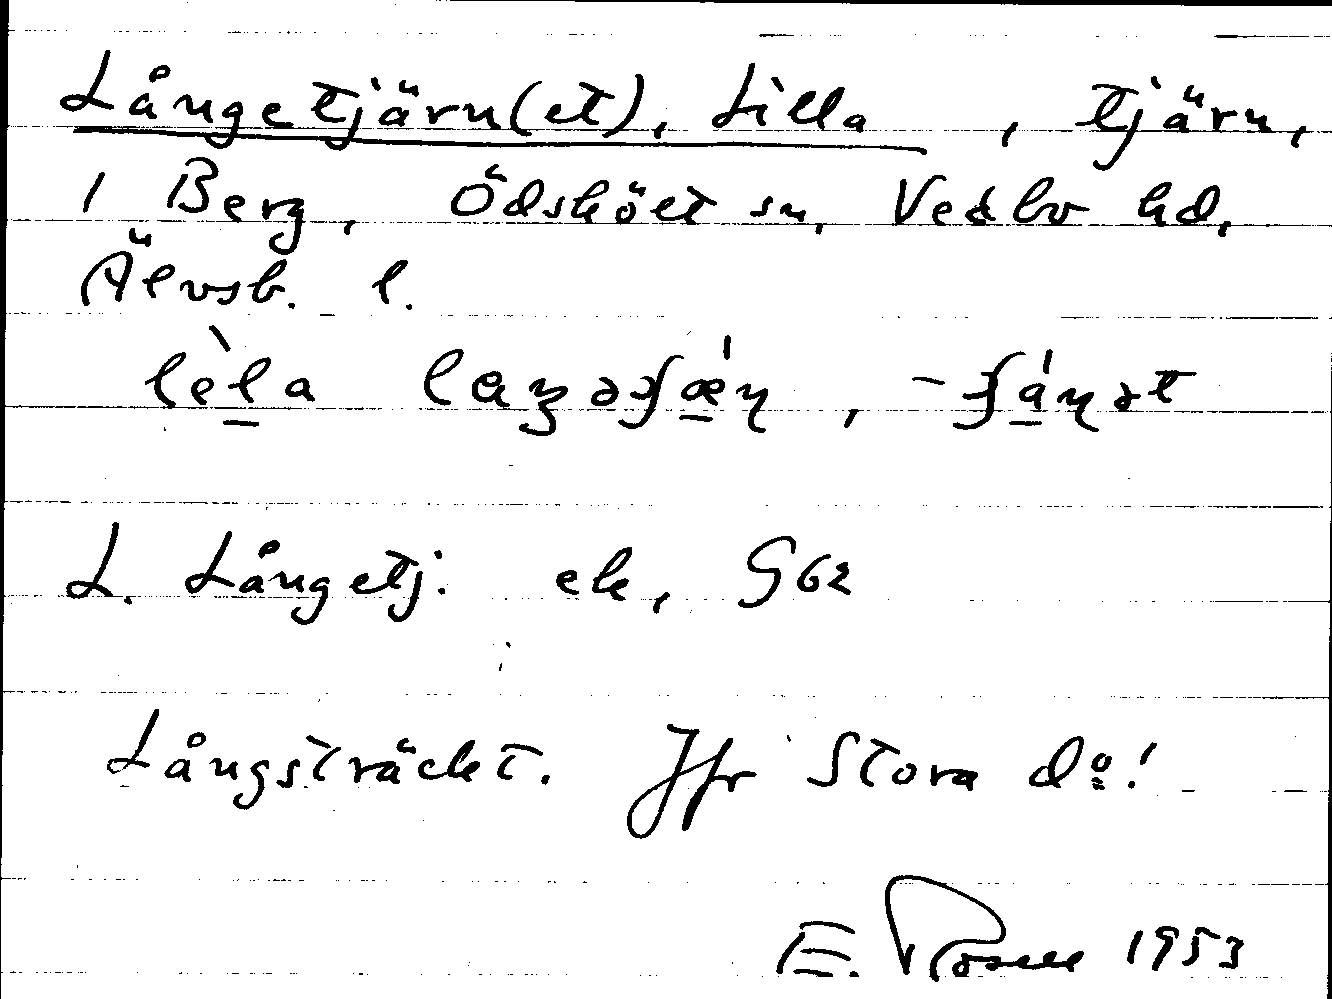 Långetjärn(et), Lilla , tjärn,
1 Berg, Ödskölt sn, Vedbo hd,
Älvsb. l.
lèla
L. Långetj. ek, G62
Långsträckt. Jfr Stora do!
E. Rosell 1953